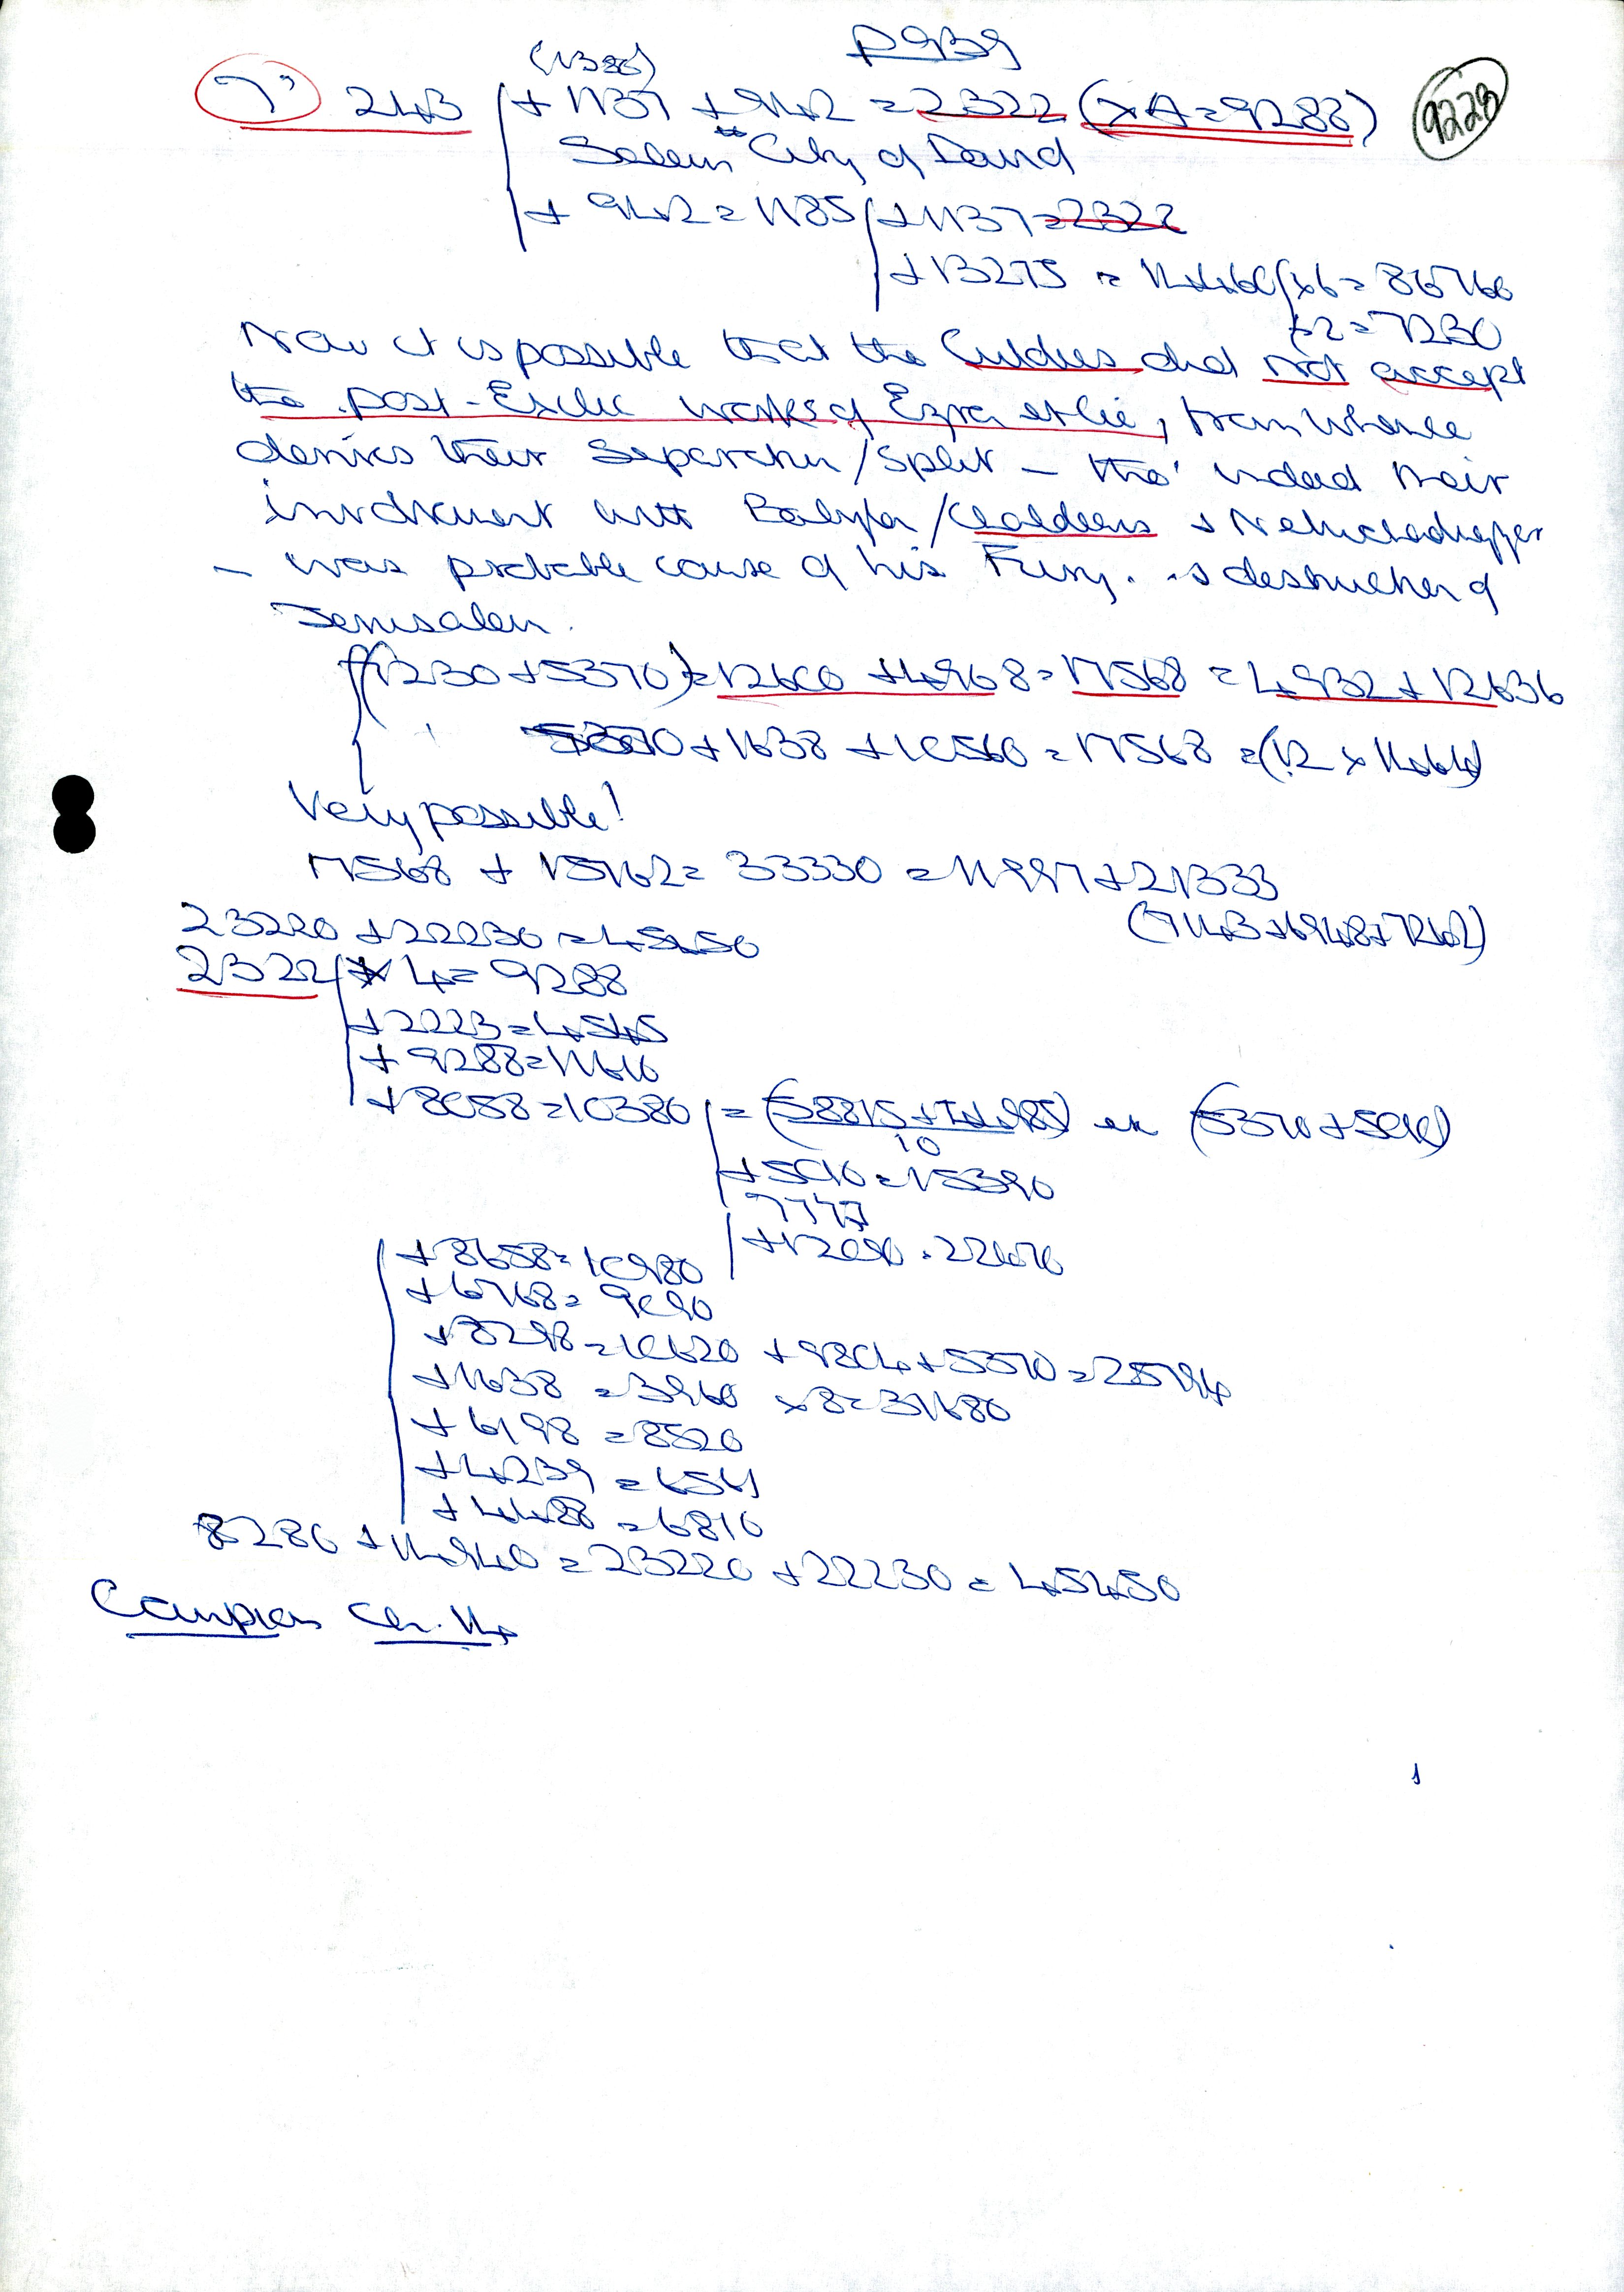 P939
(1386)
7) 243 + 1137 + 942 = 2322 (x4 = 9288) 9228
Salem City of David
+ 942 = 1185 + 1137 = 2322
+ 13275 = 14460 x6 = 86760
÷2 = 7230
Now it is possible that the Culdees did not accept
the post-Exilic works of Ezra et lie, from whence
derives their Separation/Split – tho' indeed their
involvement with Babylon/Chaldeans & Nebuchadnezzer
– was probable cause of his Fury. & destruction of
Jerusalem.
(7230 + 5370) = 12600 + 4968 = 17568 = 4932 + 12636
5370 + 1638 + 10560 = 17568 = (12 x 1464)
Very possible!
17568 + 15762 = 33330 = 11997 + 21333
(7143 + 6948 + 7242)
23220 + 22230 = 45450
2322 x 4 = 9288
+ 2223 = 4545
+ 9288 = 11610
+ 8058 = 10380 = (58815 + 44985) ex (5370 + 5010)
10
+ 5010 = 15390
7777
+ 12090 = 22470
+ 8658 = 10980
+ 6768 = 9090
+ 8298 = 10620 + 9804 + 5370 = 25794
+ 1638 = 3960 x 8 = 31680
+ 6198 = 8520
+ 4239 = 6561
+ 4488 = 6810
8280 + 14940 = 23220 + 22230 = 45450
Ch. 14